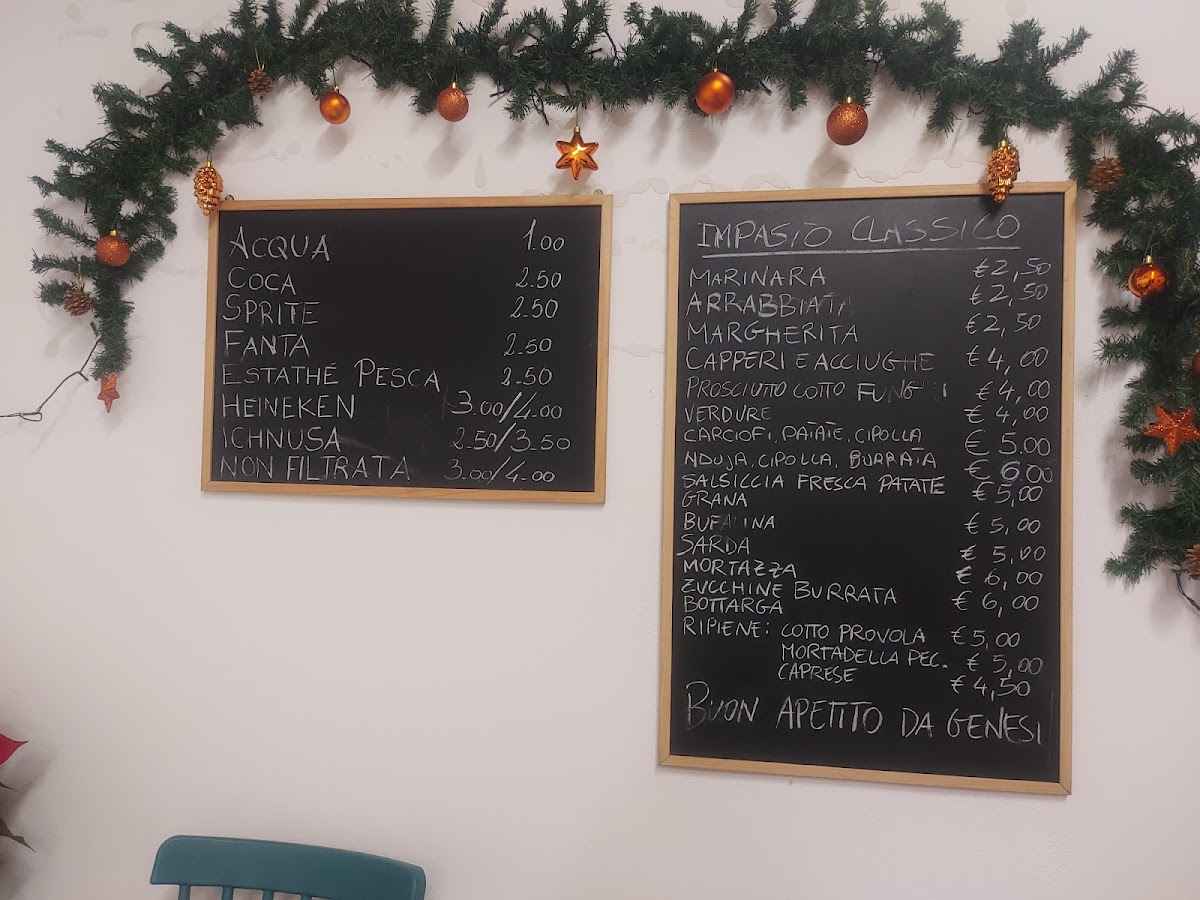 ACQUA 1.00
COCA 2.50
SPRITE 2.50
FANTA 2.50
ESTATHÉ PESCA 2.50
HEINEKEN 3.00/4.00
ICHNUSA 2.50/3.50
NON FILTRATA 3.00/4.00
IMPASTO CLASSICO
MARINARA €2,50
ARRABBIATA €2,50
MARGHERITA €2,50
CAPPERI E ACCIUGHE €4,00
PROSCIUTTO COTTO FUNGHI €4,00
VERDURE €4,00
CARCIOFI, PATATE, CIPOLLA €5.00
NDUJA, CIPOLLA, BURRATA €6.00
SALSICCIA FRESCA PATATE €5,00
GRANA
BUFALINA €5,00
SARDA €5,00
MORTAZZA €6,00
ZUCCHINE BURRATA €6,00
BOTTARGA
RIPIENE: COTTO PROVOLA €5,00
MORTADELLA PEC. €5,00
CAPRESE €4,50
BUON APETITO DA GENESI